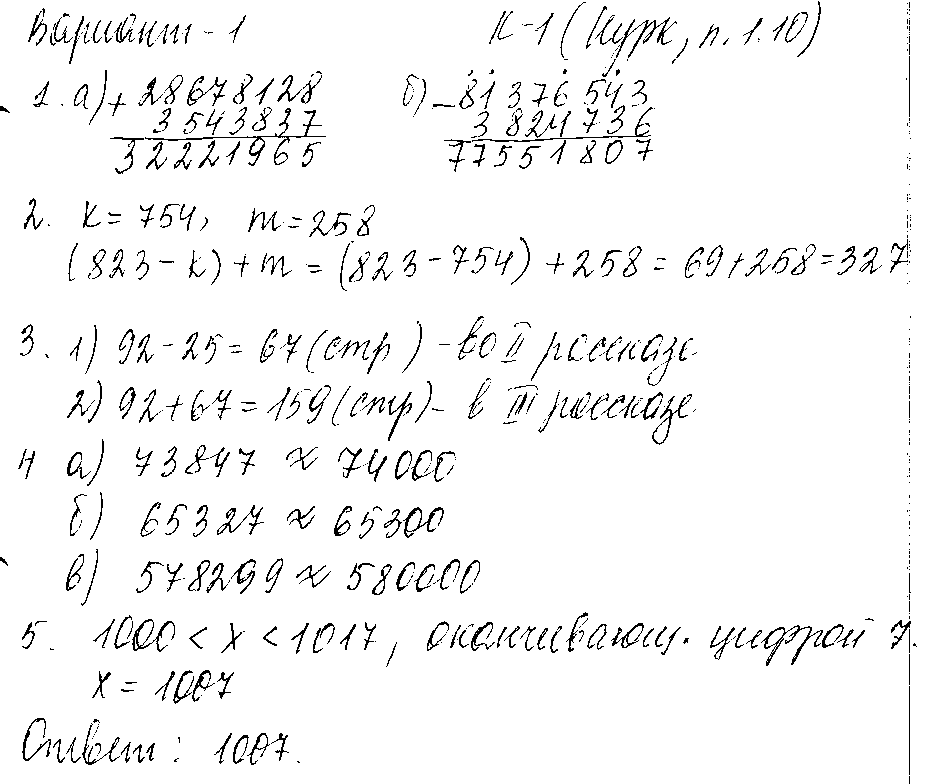 Вариант - 1 К-1 (Нурк, п. 1.10)
1. а) + 28678128 б) - 81376543
3543837 3824736
32221965 77551807
2. k = 754, m = 258
(823 - k) + m = (823 - 754) + 258 = 69 + 258 = 327
3. 1) 92 - 25 = 67 (стр) - во II рассказе
2) 92 + 67 = 159 (стр) - в III рассказе
4 а) 73847 ≈ 74000
б) 65327 ≈ 65300
в) 578299 ≈ 580000
5. 1000 < x < 1017, оканчивающ. цифрой 7.
x = 1007
Ответ: 1007.